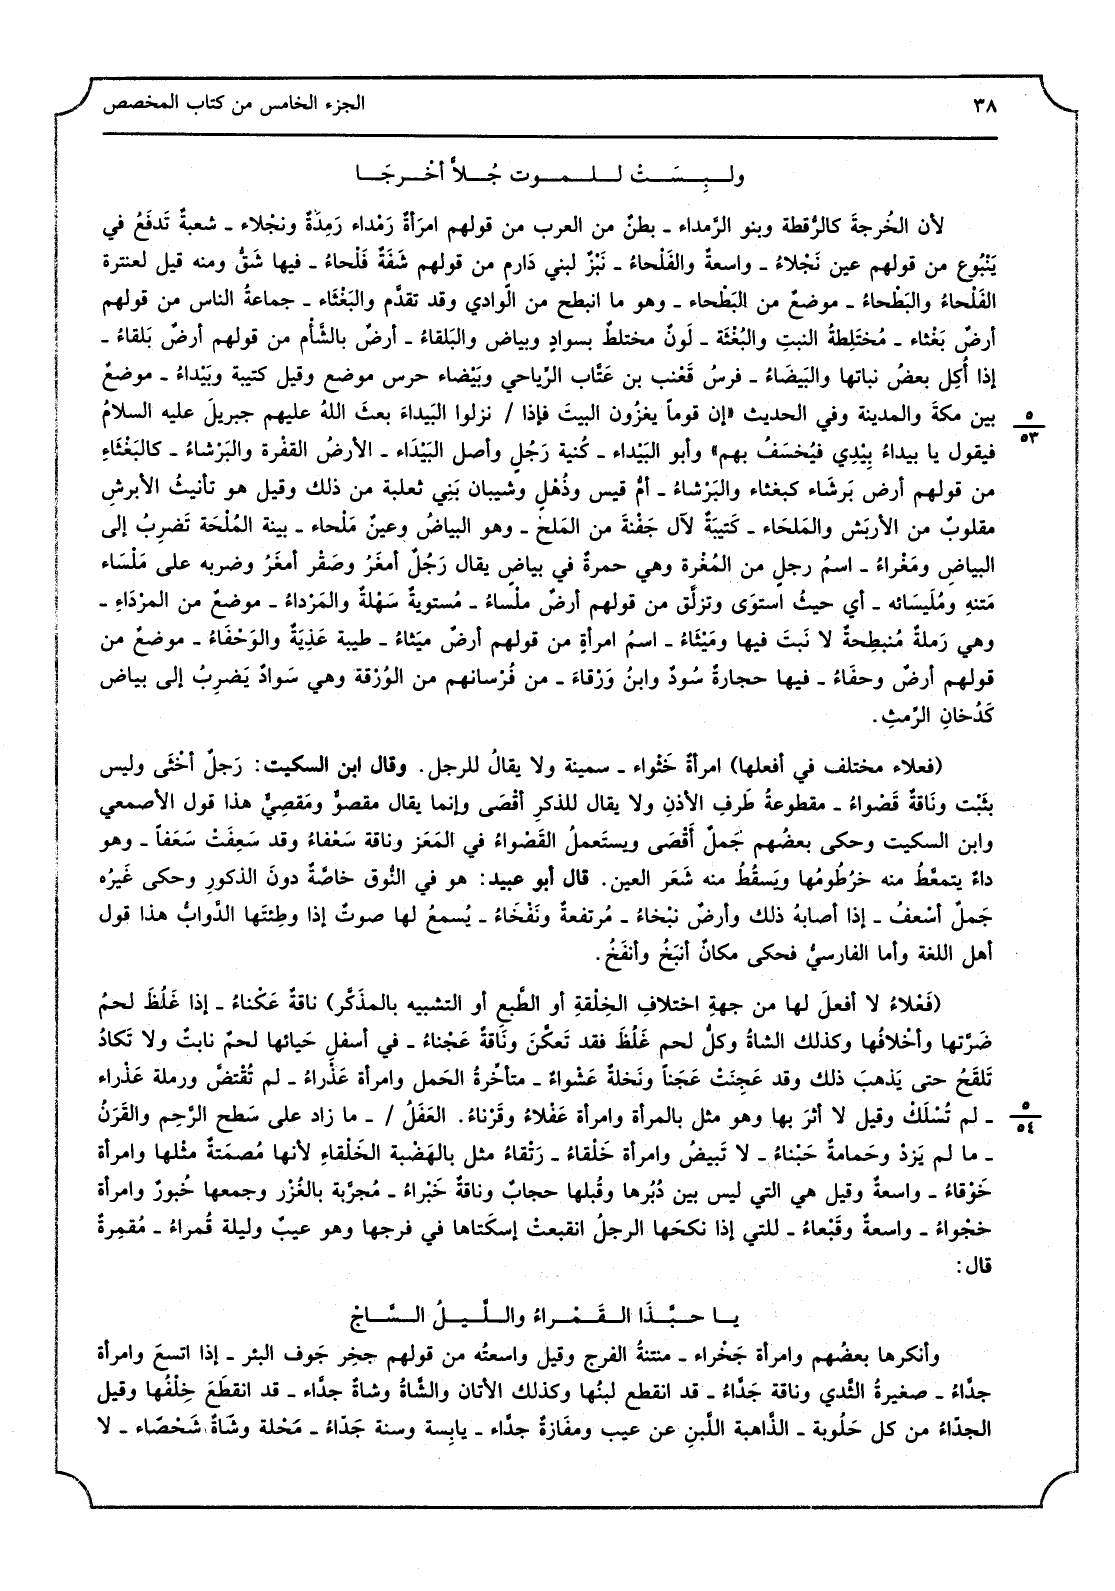 ٣٨ الجزء الخامس من كتاب المخصص
ولبِسَتْ للموت جُلاًّ أخْرجَا
لأن الخُرجةَ كالرُّقطة وبنو الرَّمداء ـ بطنٌ من العرب من قولهم امرَأةٌ رَمْداء رَمِدَةٌ ونجْلاء ـ شعبةٌ تَدفَعُ في
يَنْبُوع من قولهم عين نَجْلاءُ ـ واسعةٌ والفَلْحاءُ ـ نَبْزٌ لبني دَارِم من قولهم شَفَةٌ فَلْحاءُ ـ فيها شَقٌّ ومنه قيل لعنترة
الفَلْحاءُ والبَطْحاءُ ـ موضعٌ من البَطْحاء ـ وهو ما انبطح من الوادي وقد تقدَّم والبَغْثَاء ـ جماعةُ الناس من قولهم
أرضٌ بَغْثاء ـ مُختَلِطةُ النبتِ والبُغْثَة ـ لَونٌ مختلطٌ بسوادٍ وبياض والبَلقاءُ ـ أرضٌ بالشَّأْم من قولهم أرضٌ بَلقاءُ ـ
إذا أُكِل بعضُ نباتها والبَيضَاءُ ـ فرسُ قَعْنب بن عَتَّاب الرِّياحي وبَيْضاء حرس موضع وقيل كتيبة وبَيْداءُ ـ موضعٌ
بين مكةَ والمدينة وفي الحديث «إن قوماً يغزُون البيتَ فإذا / نزلوا البَيداءَ بعثَ اللهُ عليهم جبريلَ عليه السلامُ
٥
٥٣
فيقول يا بيداءُ بِيْدِي فيُخسَفُ بهم» وأبو البَيْداء ـ كُنية رَجُلٍ وأصل البَيْدَاء ـ الأرضُ القفْرة والبَرْشاءُ ـ كالبَغْثَاءِ
من قولهم أرض بَرشَاء كبغثاء والبَرْشاءُ ـ أمُّ قيس وذُهْلٍ وشيبان بَنِي ثعلبة من ذلك وقيل هو تأنيثُ الأبرشِ
مقلوبٌ من الأربَش والمَلحَاء ـ كَتِيبَةٌ لآل جَفْنةَ من المَلَحِ ـ وهو البياضُ وعينٌ مَلْحاء ـ بينة المُلْحَة تَضرِبُ إلى
البياضِ ومَغْراءُ ـ اسمُ رجلٍ من المُغْرة وهي حمرةٌ في بياضٍ يقال رَجُلٌ أمغَرُ وصَقْر أمغَرُ وضربه على مَلْسَاء
مَتنهِ ومُلَيسَائه ـ أي حيثُ استوَى وتزلَّق من قولهم أرضٌ ملْساءُ ـ مُستويةٌ سَهْلةٌ والمَرْداءُ ـ موضعٌ من المرْدَاءِ ـ
وهي رَملةٌ مُنبطِحةٌ لا نَبتَ فيها ومَيْثَاءُ ـ اسمُ امرأةٍ من قولهم أرضٌ ميَثاءُ ـ طيبة عَذِيَةٌ والوَحْفَاءُ ـ موضعٌ من
قولهم أرضٌ وحفَاءُ ـ فيها حجارةٌ سُودٌ وابنُ وَرْقاءَ ـ من فُرْسانهم من الوُرْقة وهي سَوادٌ يَضرِبُ إلى بياض
كَدُخانِ الرِّمثِ.
(فعلاء مختلف في أفعلها) امرأةٌ خَثْواء ـ سمينة ولا يقالُ للرجل. وقال ابن السكيت: رَجلٌ أخْثَى وليس
بثَبْت ونَاقةٌ قَصْواءُ ـ مقطوعةُ طَرفِ الأذنِ ولا يقال للذكرِ أقْصَى وإنما يقال مقصوٌّ ومَقصِيٌّ هذا قول الأصمعي
وابن السكيت وحكى بعضُهم جَملٌ أقْصَى ويستَعملُ القَصْواءُ في المَعَز وناقة سَعْفاءُ وقد سَعِفَتْ سَعَفاً ـ وهو
داءٌ يتمعَّطُ منه خرْطُومُها ويَسقُطُ منه شَعَر العين. قال أبو عبيد: هو في النُّوق خاصَّةً دونَ الذكورِ وحكى غَيرُه
جَملٌ أسْعفُ ـ إذا أصابهُ ذلك وأرضٌ نبْخاءُ ـ مُرتفعةٌ ونَفْخَاءُ ـ يُسمعُ لها صوتٌ إذا وطِئتَها الدَّوابُّ هذا قول
أهل اللغة وأما الفارسيُّ فحكى مكانٌ أنبَخُ وأنفَخُ.
(فَعْلاءُ لا أفعلَ لها من جهةِ اختلافِ الخِلْقةِ أو الطَّبعِ أو التشبيه بالمذَكَّر) ناقةٌ عَكْناءُ ـ إذا غَلُظَ لحمُ
ضَرَّتها وأخْلافُها وكذلك الشاةُ وكلُّ لحم غَلُظَ فقد تَعكَّنَ ونَاقةٌ عَجْناءُ ـ في أسفلِ حَيائها لحمٌ نابتٌ ولا تَكادُ
تَلقَحُ حتى يَذهبَ ذلك وقد عَجِنَتْ عَجَناً ونَخلةٌ عَشْواءٌ ـ متأخِّرةُ الحَمل وامرأة عَذْراءُ ـ لم تُقْتضَّ ورملة عَذْراء
ـ لم تُسْلَكْ وقيل لا أثرَ بها وهو مثل بالمرأة وامرأة عَفْلاءُ وقَرْناءُ. العَفَلُ / ـ ما زاد على سَطح الرَّحِم والقَرَنُ
٥
٥٤
ـ ما لم يَزدْ وحَمامةٌ حَبْناءُ ـ لا تَبيضُ وامرأة خَلْقاءُ ـ رَتْقاءُ مثل بالهَضْبة الخَلْقاءِ لأنها مُصمَتةٌ مثْلها وامرأة
خَوْقاءُ ـ واسعةٌ وقيل هي التي ليس بين دُبُرها وقُبلها حجابٌ وناقةٌ خَبْراءُ ـ مُجرَّبة بالغُزْر وجمعها خُبورٌ وامرأة
خجْواءُ ـ واسعةٌ وقَبْعاءُ ـ للتي إذا نكحَها الرجلُ انقبعتْ إسكَتاها في فرجها وهو عيبٌ وليلة قُمراءُ ـ مُقمِرةٌ
قال:
يا حبَّذَا القَمْراءُ واللَّيلُ السَّاجْ
وأنكرها بعضُهم وامرأة جَخْراء ـ منتنةُ الفرج وقيل واسعتُه من قولهم جخِر جَوف البئر ـ إذا اتسعَ وامرأة
جدَّاءُ ـ صغيرةُ الثَّدي وناقة جَدَّاءُ ـ قد انقطع لبنُها وكذلك الأتان والشَّاةُ وشاةٌ جدَّاء ـ قد انقطَعَ خِلْفُها وقيل
الجدّاءُ من كل حَلُوبة ـ الذَّاهبة اللَّبنِ عن عيب ومفَازةٌ جدَّاء ـ يابِسة وسنة جَدّاءُ ـ مَحْلة وشَاةٌ شَحْصَاء ـ لا